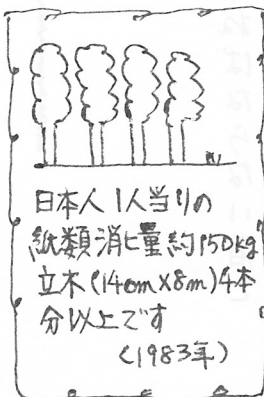 日本人1人当りの
紙類消ヒ量約150kg
立木(14cm×8m)4本
分以上です
(1983年)